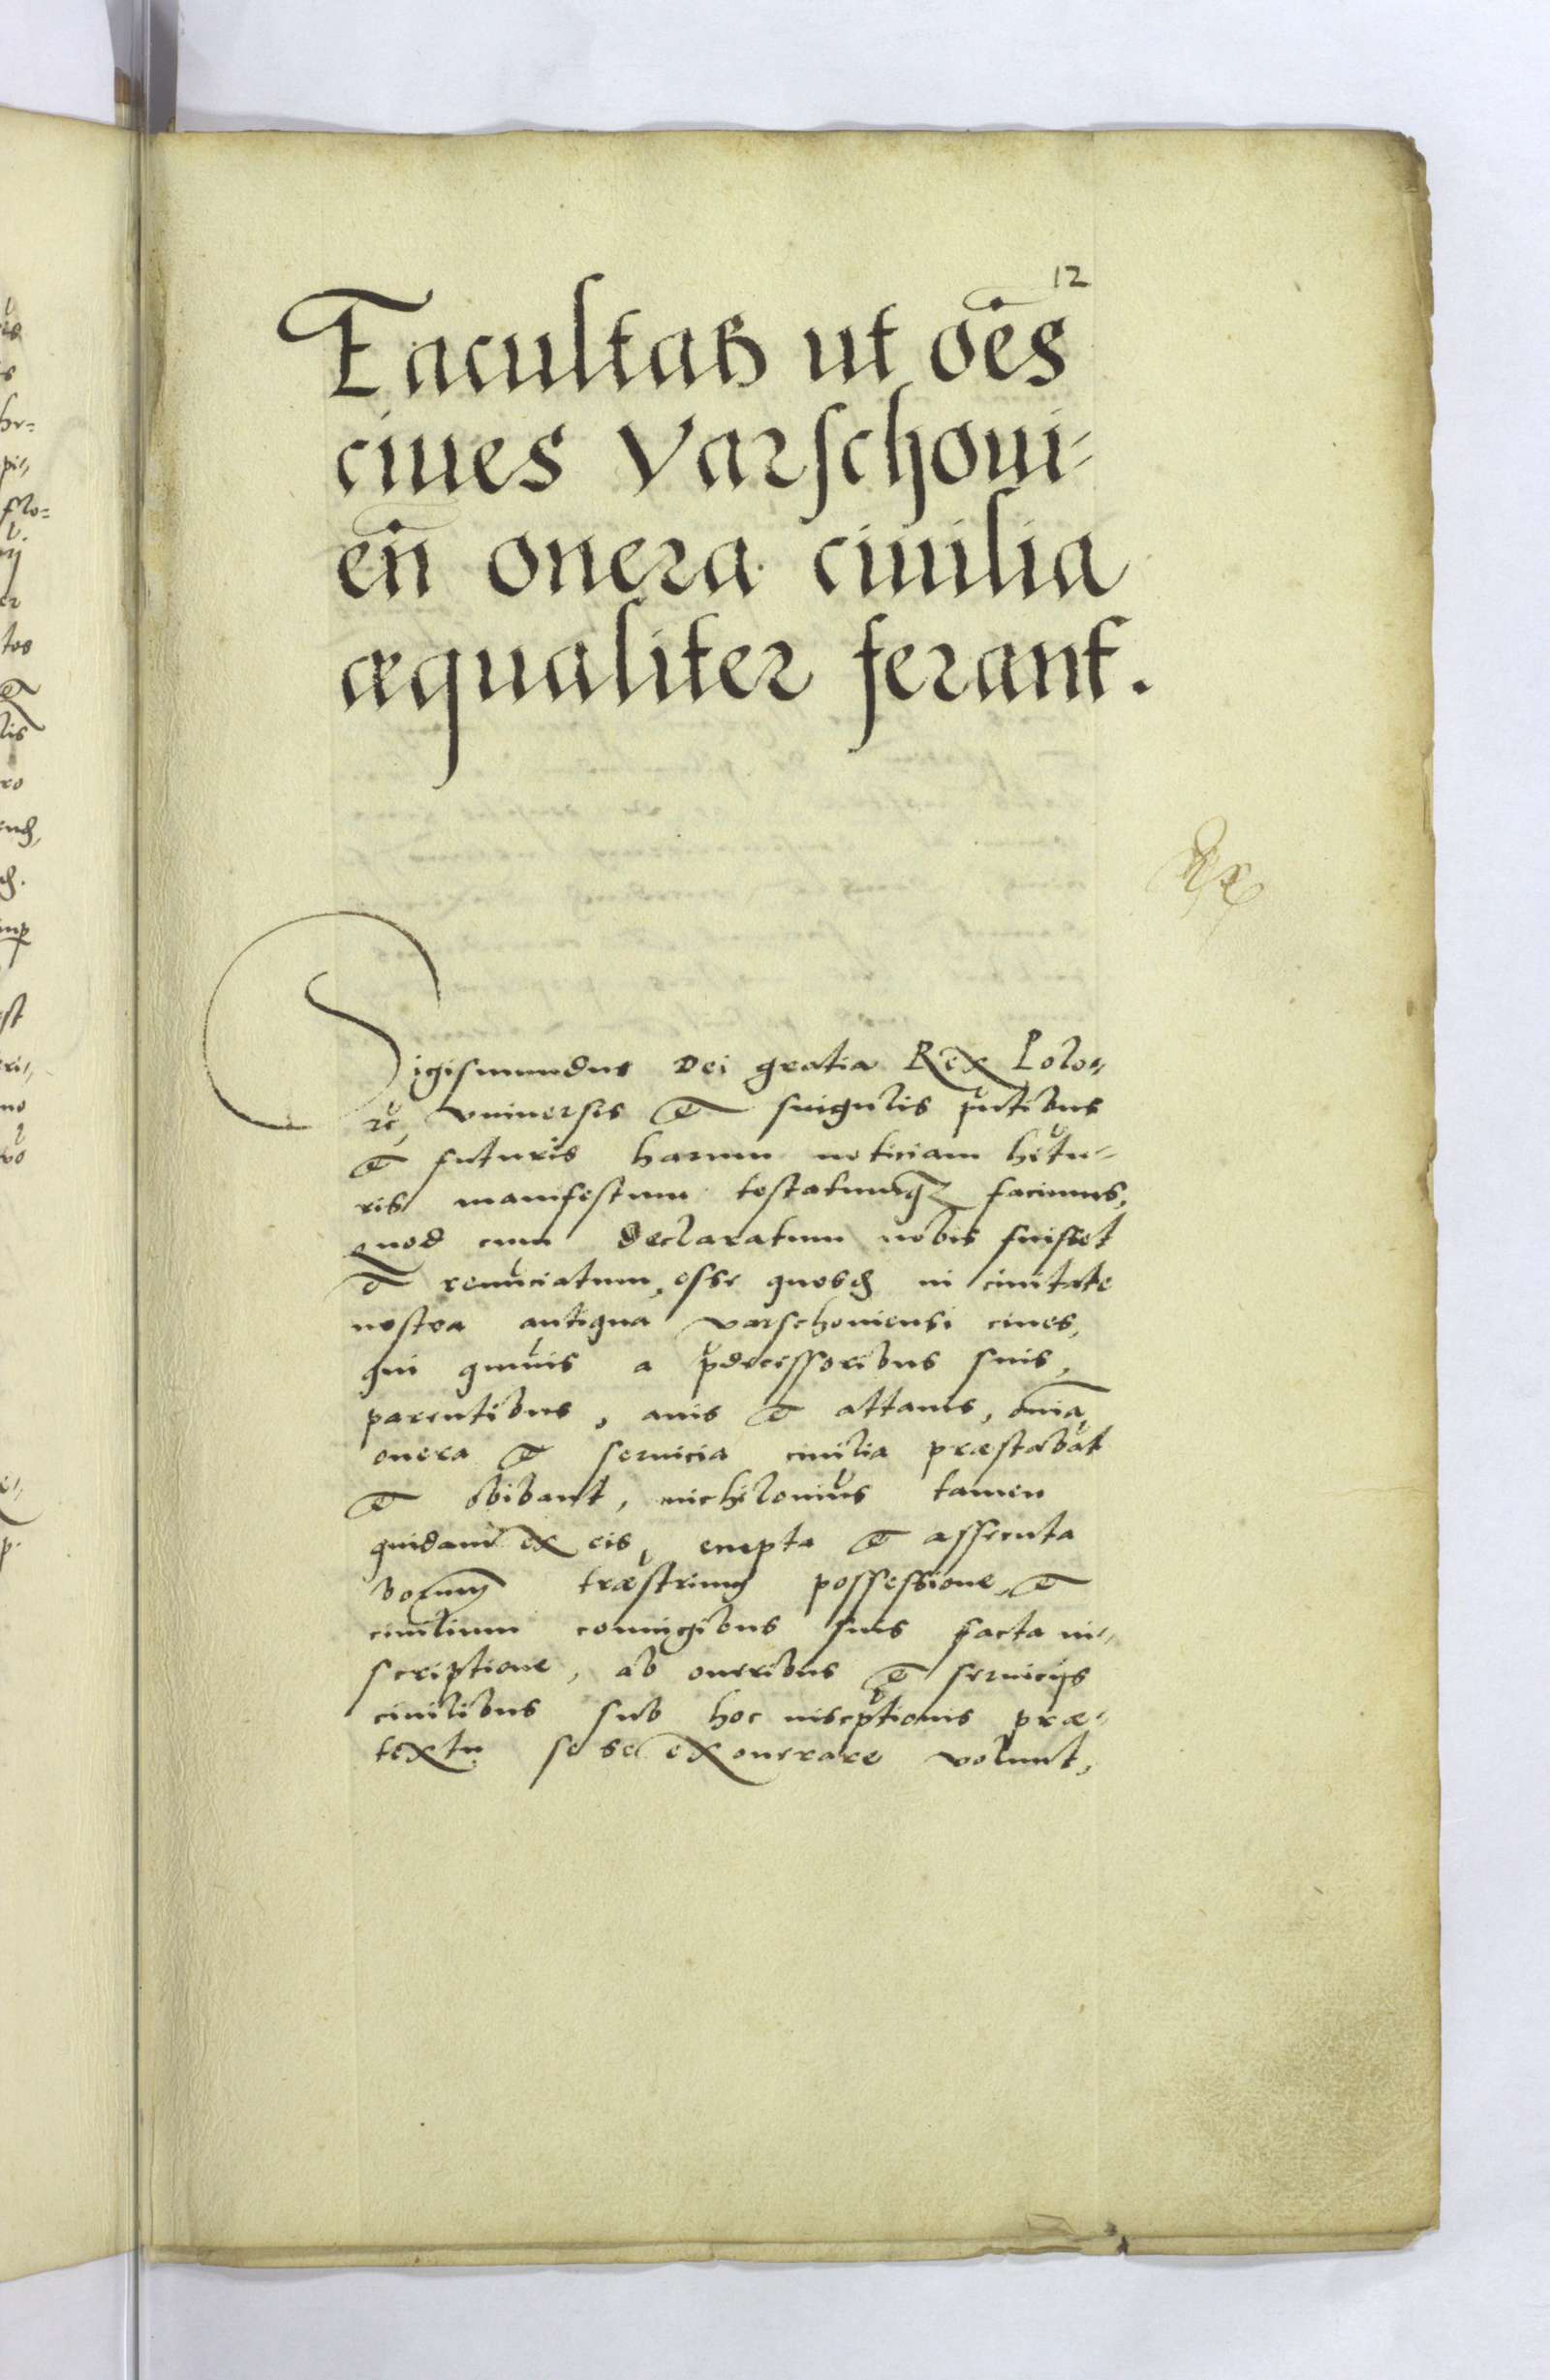 12
Facultas ut oēs
ciues Varschoui-
eñ onera ciuilia
æqualiter ferant.
Sigismundus Dei gratia Rex Polo-
rc, vniuersis et singulis pntibus
et futuris harum noticiam hetu-
ris manifestum testatumq3 facimus,
quod cum declaratum nobis fuisset
et renunciatum, esse quosd in ciuitate
nostra antiqua varschouiensi ciues,
qui qmuis a pdecessoribus suis,
parentibus, auis et attauis, omia
onera et seruicia ciuilia præstabāt
et obibant, nichilomius tamen
quidam ex eis, empta et assecuta
bonorum træstrium possessione, et
ciuilium coniugibus suis facta in-
scriptione, ab oneribus et seruicijs
ciuilibus sub hoc inscptionis præ-
textu sese exonerare volunt,